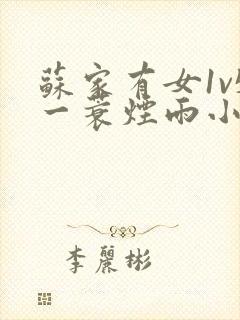 蘇家有女1v
一蓑煙雨小
李麗彬